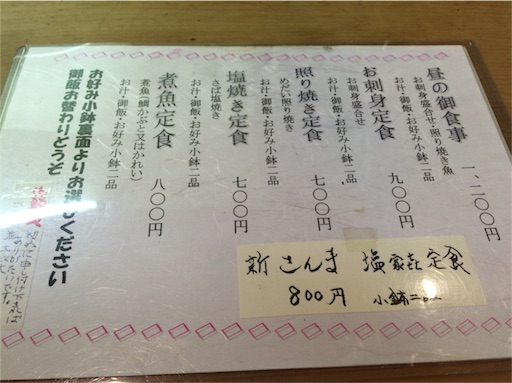 昼の御食事
お刺身盛合せ・照り焼き魚
お汁・御飯・お好み小鉢二品
一、二〇〇円
お刺身定食
お刺身盛合せ
お汁・御飯・お好み小鉢二品
九〇〇円
照り焼き定食
めだい照り焼き
お汁・御飯・お好み小鉢二品
七〇〇円
塩焼き定食
さば塩焼き
お汁・御飯・お好み小鉢二品
七〇〇円
煮魚定食
煮魚(鯛かぶと又はかれい)
お汁・御飯・お好み小鉢二品
八〇〇円
お好み小鉢裏面よりお選びください
御飯お替わりどうぞ
新さんま 塩家㐂定食
800円 小鉢二品